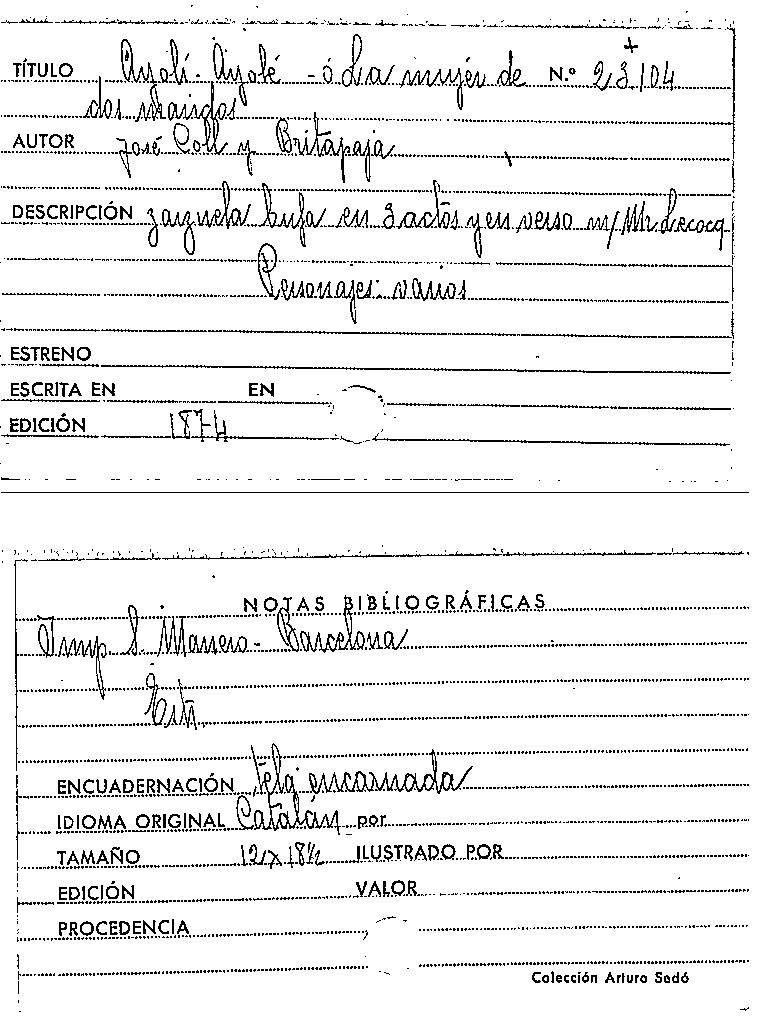 TÍTULO Ayolí-Ayolé - ó La mujer de N.º 23.104
dos maridos
AUTOR José Coll y Britapaja
DESCRIPCIÓN zarzuela bufa en 3 actos y en verso m/ Mr Lecocq
Personajes: varios
ESTRENO
ESCRITA EN EN
EDICIÓN 1874
NOTAS BIBLIOGRÁFICAS
Imp. S. Manero - Barcelona
ENCUADERNACIÓN tela encarnada
IDIOMA ORIGINAL Catalán por
TAMAÑO 12 x 18½ ILUSTRADO POR
EDICIÓN VALOR
PROCEDENCIA
Colección Arturo Sedó